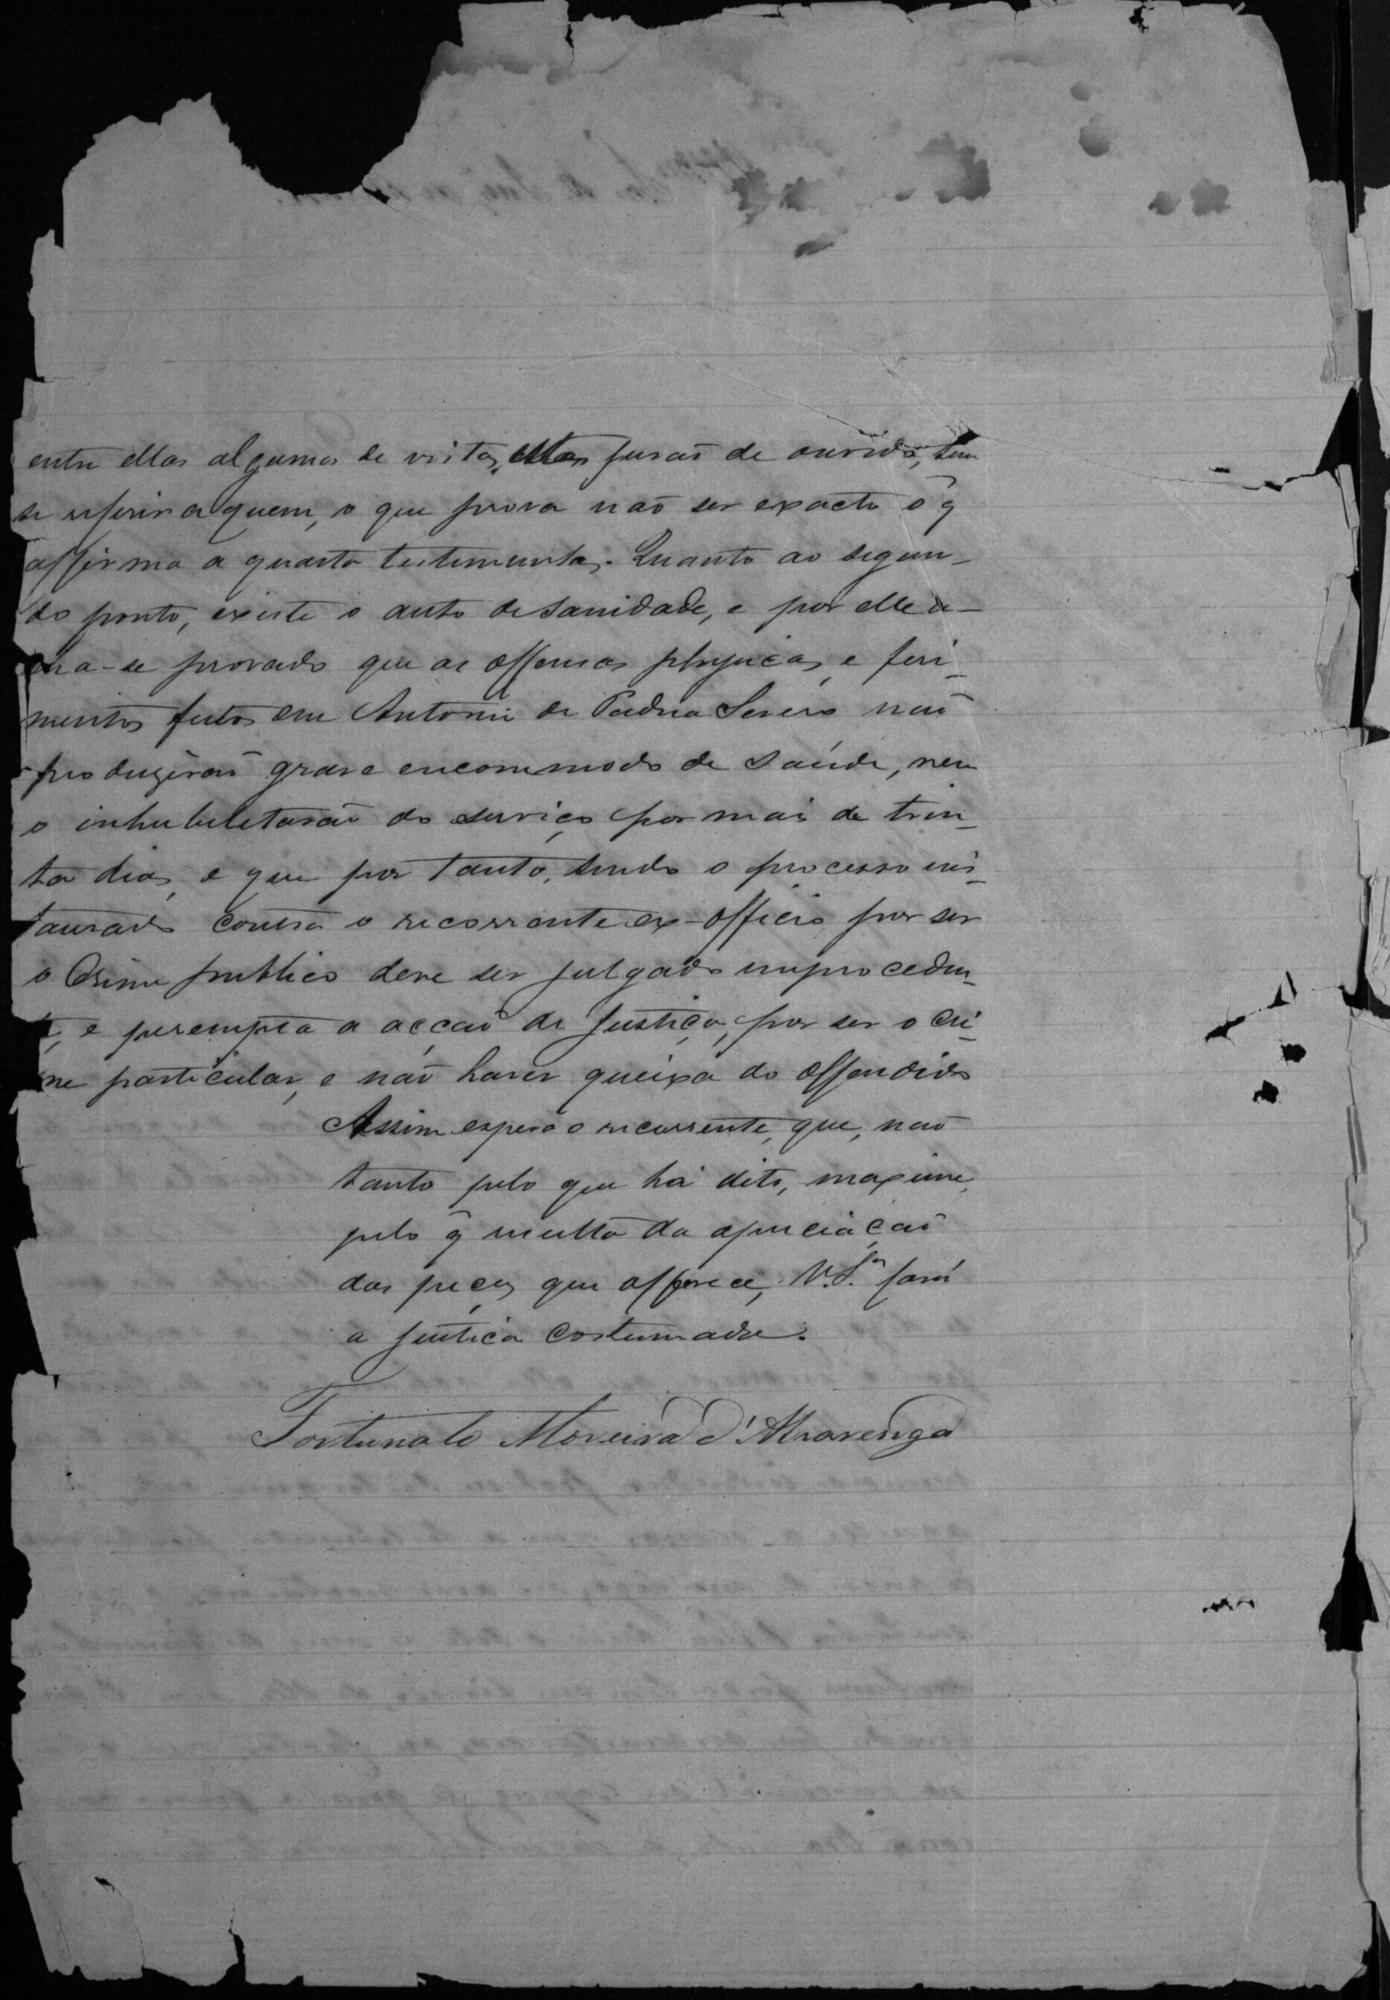 entre ellas algumas de vista, ellas jurão de ouvido, sem
se referir a quem, o que prova não ser exacto o q̃
affirma a quarta testemunha. Quanto ao segun-
do ponto, existe o auto de sanidade, e por elle a-
cha-se provado que as offensas physicas, e feri-
mentos feitos em Antonio de Padua Severo não
produzirão grave encommodo de saúde, nem
o inhabelitarão do serviço por mais de trin-
ta dias, e que por tanto, sendo o processo ins-
taurado contra o recorrente ex-officio por ser
o Crime publico deve ser julgado improceden-
te, e perempta a acção da Justiça, por ser o cri-
me particular, e não haver queixa do offendido
Assim espera o recorrente, que, não
tanto pelo que há dito, maxime,
pelo q̃ resulta da apreciação
das peças que offerece, V.S.ª fará
a justiça costumada.
Fortunato Moreira d'Alvarenga